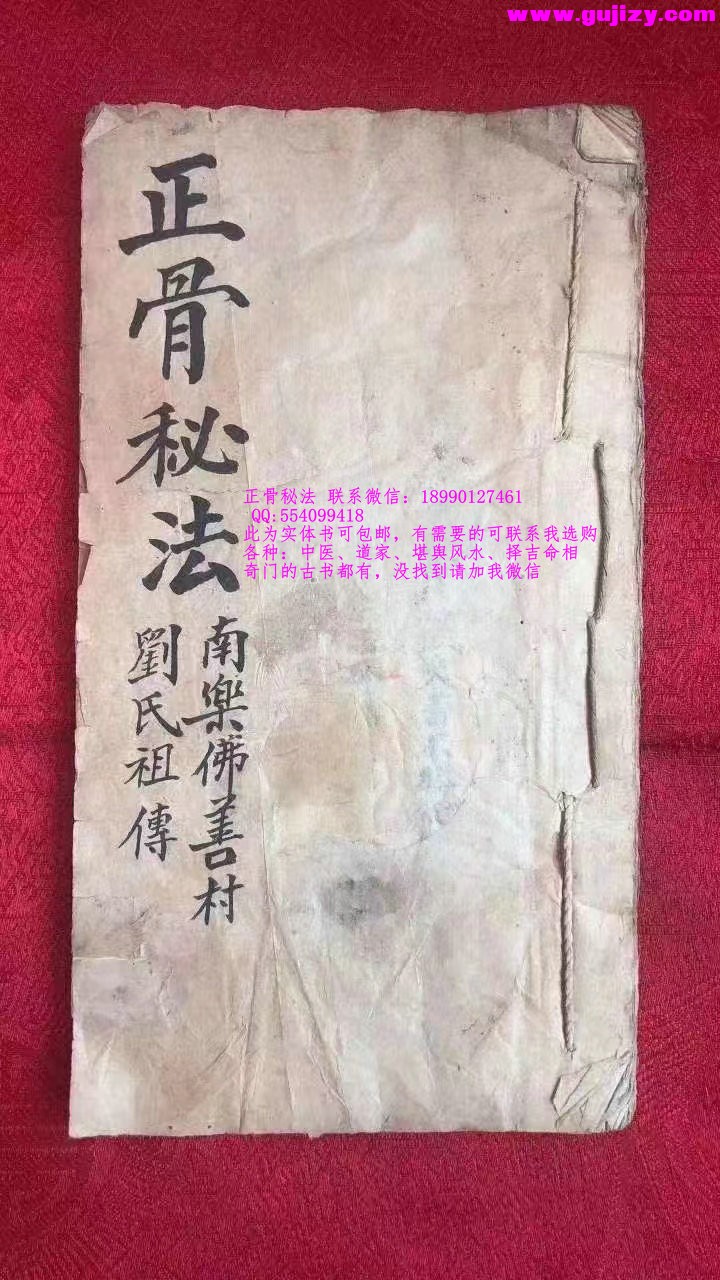 www.gujizy.com
正骨秘法
南樂佛善村
劉氏祖傳
正骨秘法 联系微信：18990127461
QQ:554099418
此为实体书可包邮，有需要的可联系我选购
各种：中医、道家、堪舆风水、择吉命相
奇门的古书都有，没找到请加我微信